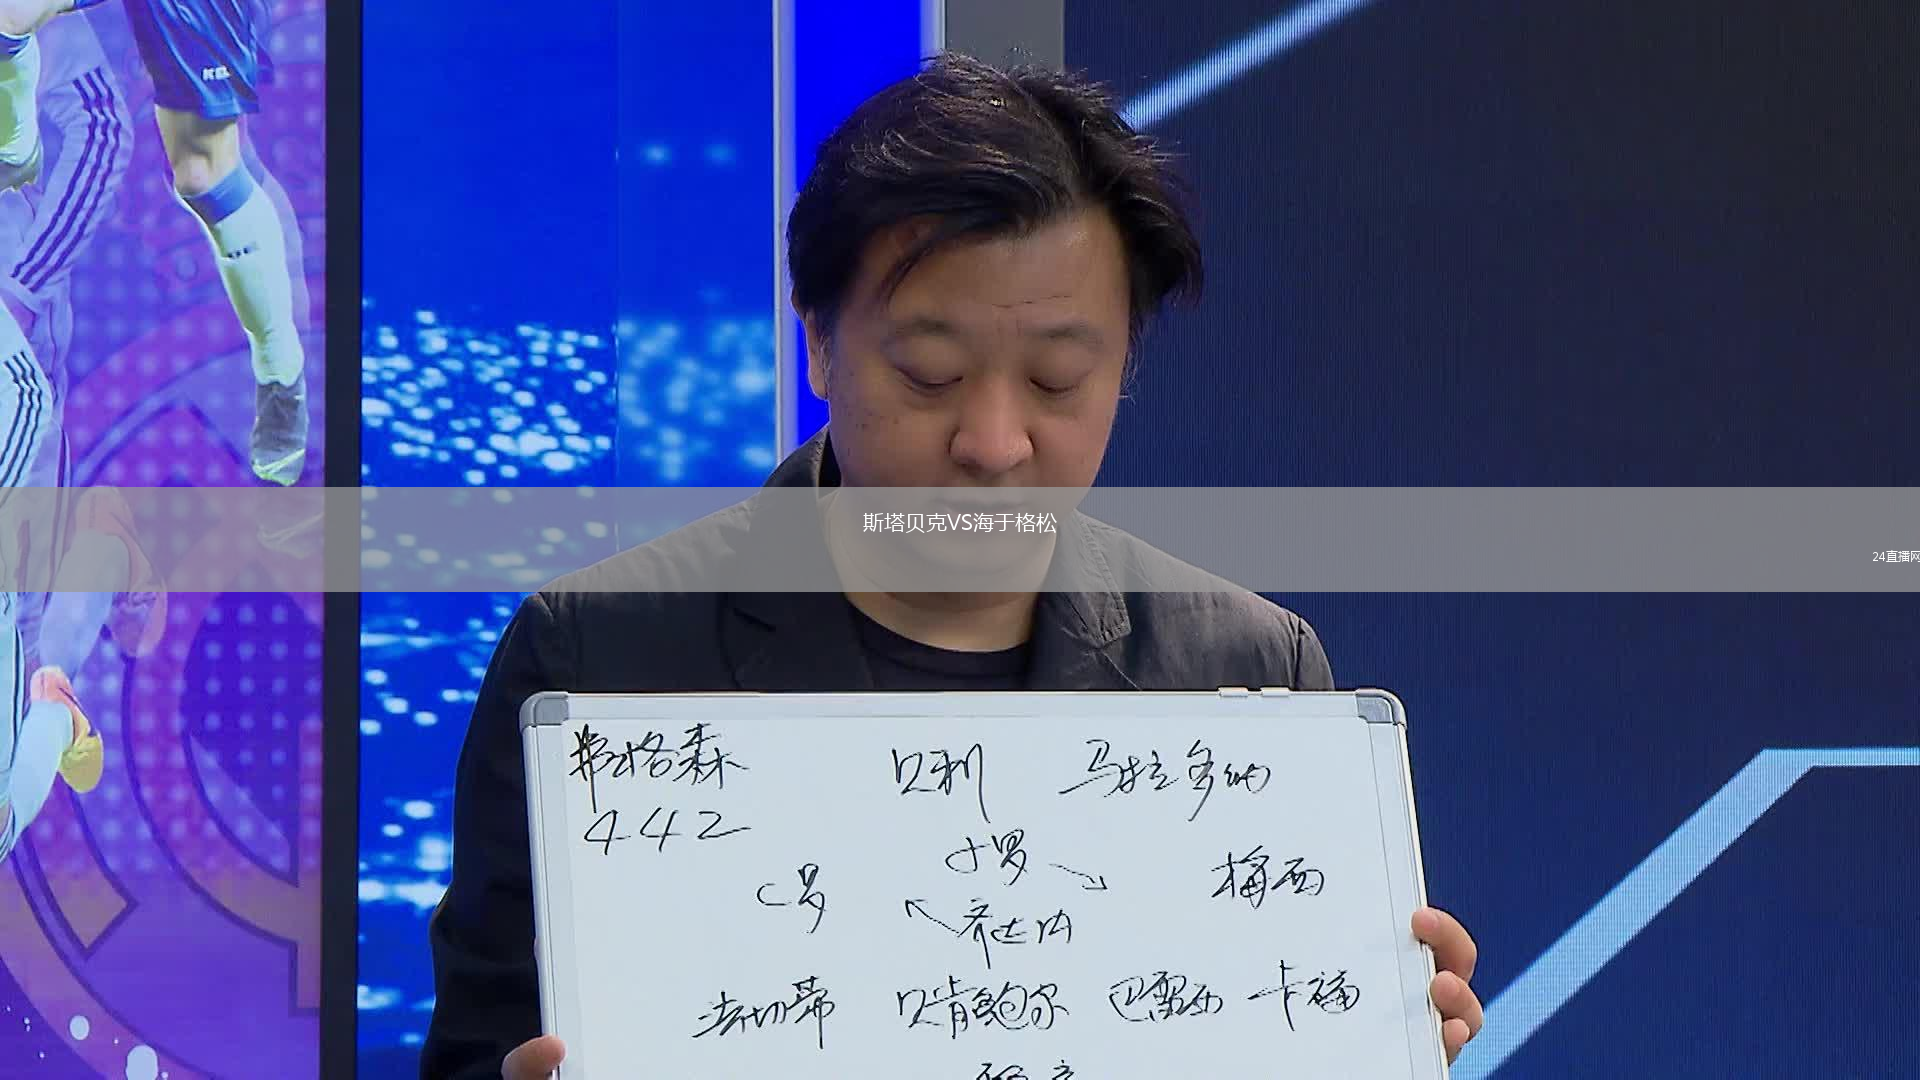 斯塔贝克VS海于格松
24直播网
弗格森 贝利 马拉多纳
442
小罗
C罗 梅西
齐达内
法切蒂 贝肯鲍尔 巴雷西 卡福